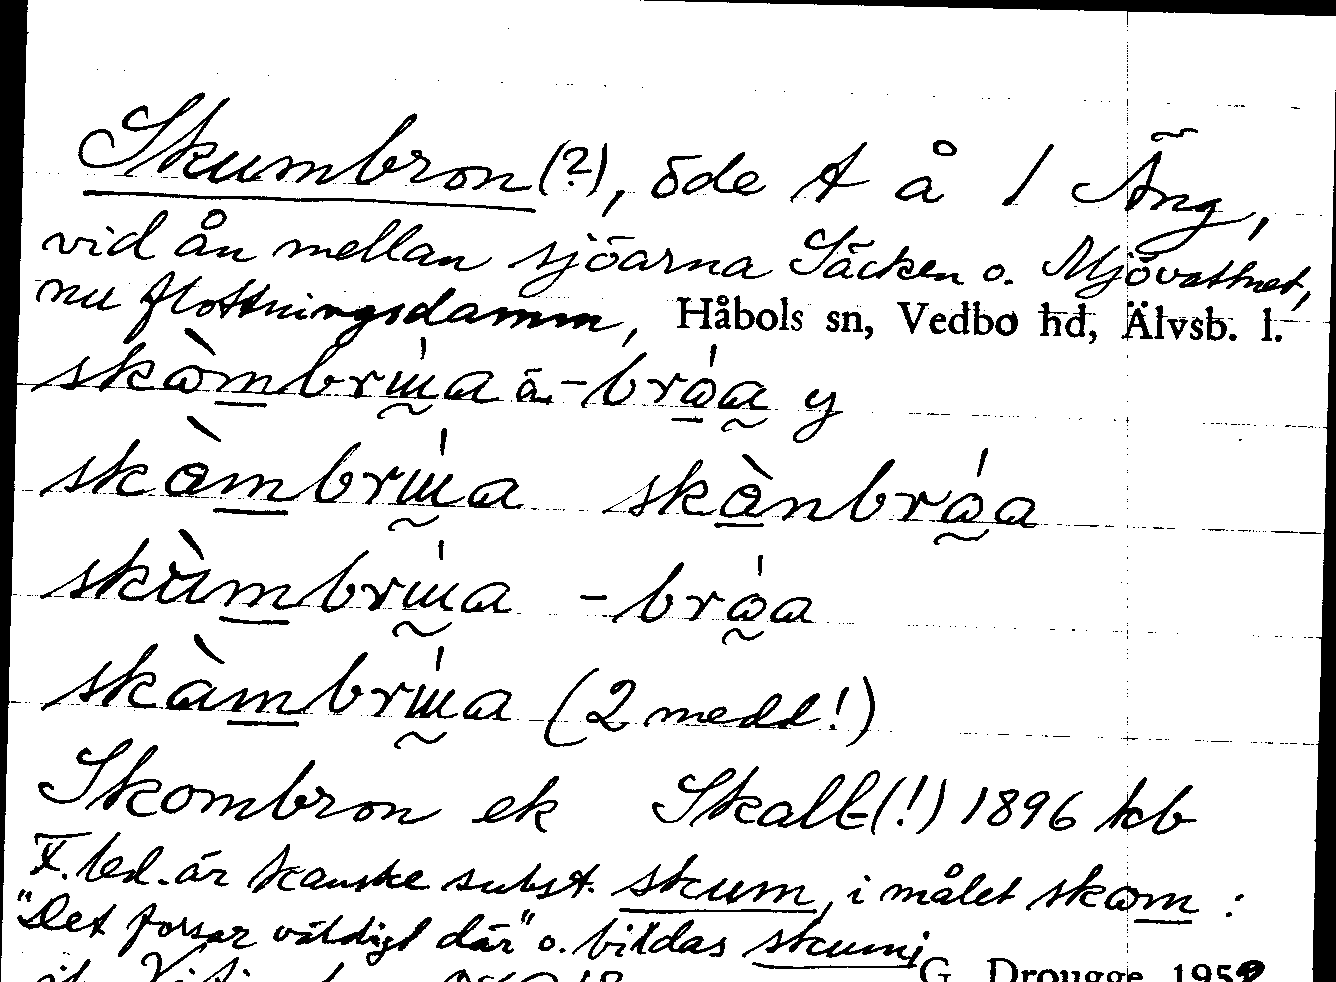 Skumbron(?), öde t å 1 Äng,
vid ån mellan sjöarna Säcken o. Mjövattnet,
nu flottningsdamm, Håbols sn, Vedbo hd, Älvsb. l.
skɷ̀mbrɯ́a ä. -brɷ́a y
skɷ̀mbrɯ́a skɷ̀nbrɷ́a
skùmbrɯ́a -brɷ́a
skàmbrɯ́a (2 medd!)
Skombron ek Skall-(!) 1896 kb
F. led. är kanske subst. skum, i målet skɷm :
"Det forsar väldigt där" o. bildas skum;
G. Drougge 1952